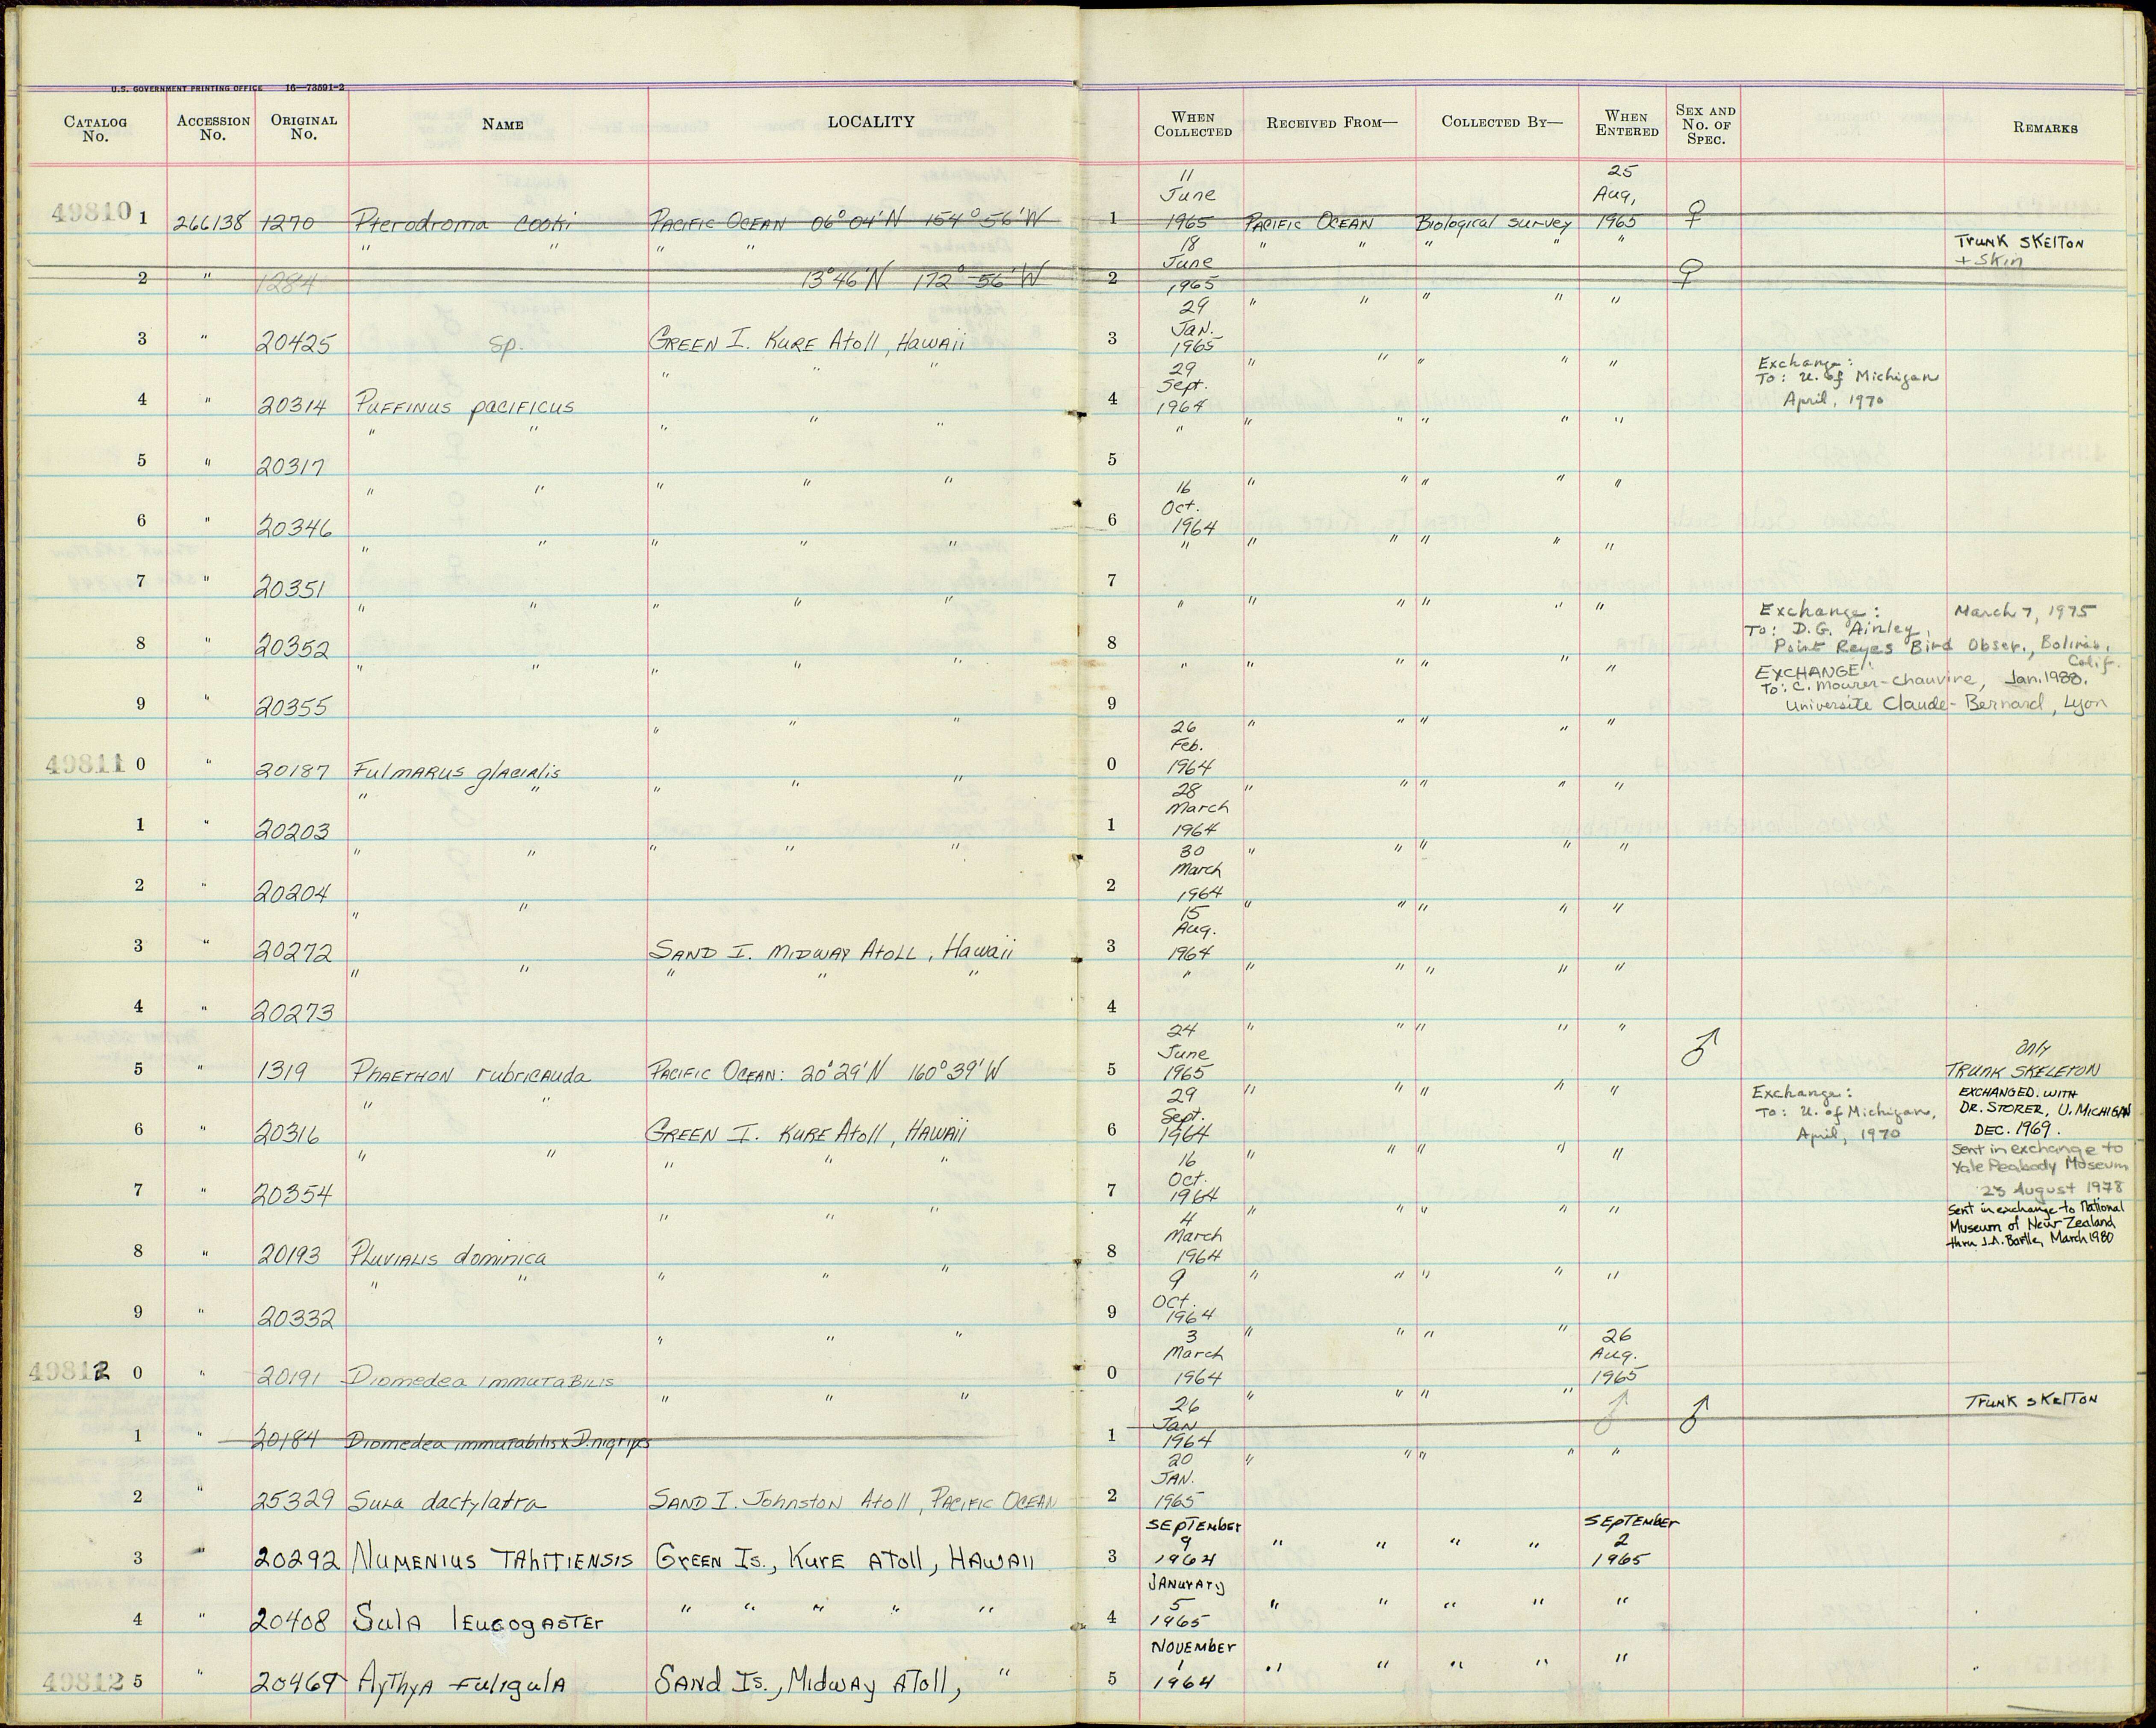 U.S. GOVERNMENT PRINTING OFFICE 16—73591-2
CATALOG No. ACCESSION No. ORIGINAL No. NAME LOCALITY WHEN COLLECTED RECEIVED FROM— COLLECTED BY— WHEN ENTERED SEX AND No. OF SPEC. REMARKS
49810 1 266138 1270 Pterodroma cooki PACIFIC OCEAN 06° 04' N 154° 56' W 1 11 June 1965 PACIFIC OCEAN Biological survey 25 Aug, 1965 ♀
2 " 1284 " " " " 13° 46' N 172° 56' W 2 18 June 1965 " " " " " ♀ TRUNK SKELTON + Skin
3 " 20425 sp. GREEN I. KURE Atoll, Hawaii 3 29 Jan. 1965 " " " " "
4 " 20314 PUFFINUS pacificus " " " 4 29 Sept. 1964 " " " " " Exchange: To: U. of Michigan April, 1970
5 " 20317 " " " " " 5 " " " " " "
6 " 20346 " " " " " 6 16 Oct. 1964 " " " " "
7 " 20351 " " " " " 7 " " " " " "
8 " 20352 " " " " " 8 " " " " " " Exchange: March 7, 1975 To: D.G. Ainley, Point Reyes Bird Obser., Bolinas, Calif.
9 " 20355 " " " " " 9 " " " " " " EXCHANGE: To: C. Mourer-Chauvire, Jan. 1988. Universite Claude-Bernard, Lyon
49811 0 " 20187 FULMARUS glacialis " " " 0 26 Feb. 1964 " " " " "
1 " 20203 " " " " " 1 28 March 1964 " " " " "
2 " 20204 " " " " " 2 30 March 1964 " " " " "
3 " 20272 " " SAND I. MIDWAY Atoll, Hawaii 3 15 Aug. 1964 " " " " "
4 " 20273 " " " " " 4 " " " " " "
5 " 1319 PHAETHON rubricauda PACIFIC OCEAN: 20° 29' N 160° 39' W 5 24 June 1965 " " " " " ♂ only TRUNK SKELETON
6 " 20316 " " GREEN I. KURE Atoll, HAWAII 6 29 Sept. 1964 " " " " " Exchange: To: U. of Michigan, April, 1970 EXCHANGED WITH DR. STORER, U. MICHIGAN DEC. 1969.
7 " 20354 " " " " " 7 16 Oct. 1964 " " " " " Sent in exchange to Yale Peabody Museum 23 August 1978
8 " 20193 PLUVIALIS dominica " " " 8 4 March 1964 " " " " " Sent in exchange to National Museum of New Zealand thru J.A. Bartle, March 1980
9 " 20332 " " " " " 9 9 Oct. 1964 " " " " "
49812 0 " 20191 Diomedea IMMUTABILIS " " " 0 3 March 1964 " " " " 26 Aug. 1965
1 " 20184 Diomedea immutabilis x D. nigripes " " " 1 26 Jan 1964 " " " " ♂ ♂ TRUNK SKELTON
2 " 25329 Sula dactylatra SAND I. Johnston Atoll, PACIFIC OCEAN 2 20 JAN. 1965 " " " " "
3 " 20292 NUMENIUS TAHITIENSIS GREEN Is., KURE ATOLL, HAWAII 3 SEPTEMBER 9 1964 " " " " SEPTEMBER 2 1965
4 " 20408 SULA lEUCOgASTEr " " " " " 4 JANURARY 5 1965 " " " " "
49812 5 " 20469 AyThyA FuligulA SAND Is., Midway ATOLL, " 5 NOVEMBER 1 1964 " " " " "